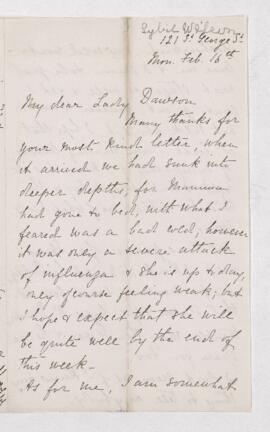 121 St. George St.
Mon. Feb. 16th
My dear Lady Dawson
Many thanks for
your most kind letter, when
it arrived we had sunk into
deeper depths, for Mamma
had gone to bed, with what I
feared was a bad cold; however
it was only a severe attack
of influenza & she is up to day,
only of course feeling weak; but
I hope & expect that she will
be quite well by the end of
this week_
As for me, I am somewhat